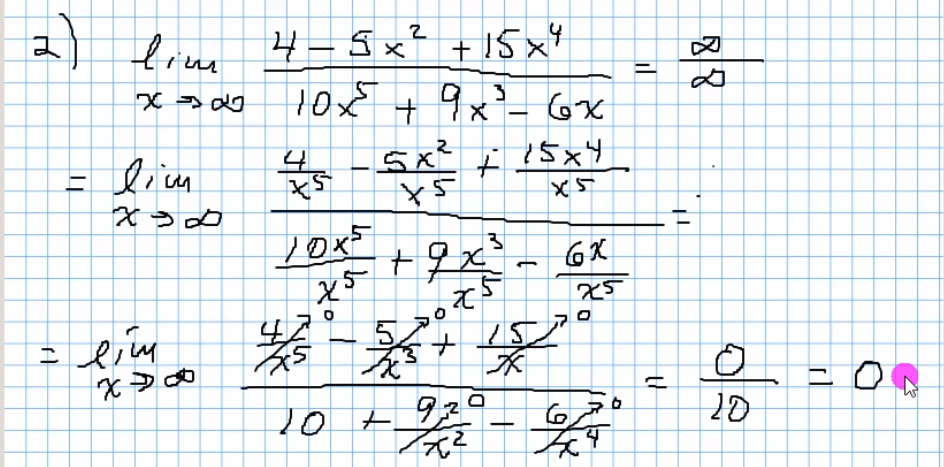 2) lim x→∞ (4 − 5x² + 15x⁴)/(10x⁵ + 9x³ − 6x) = ∞/∞
= lim x→∞ (4/x⁵ − 5x²/x⁵ + 15x⁴/x⁵)/(10x⁵/x⁵ + 9x³/x⁵ − 6x/x⁵) =
= lim x→∞ (4/x⁵→0 − 5/x³→0 + 15/x→0)/(10 + 9/x²→0 − 6/x⁴→0) = 0/10 = 0